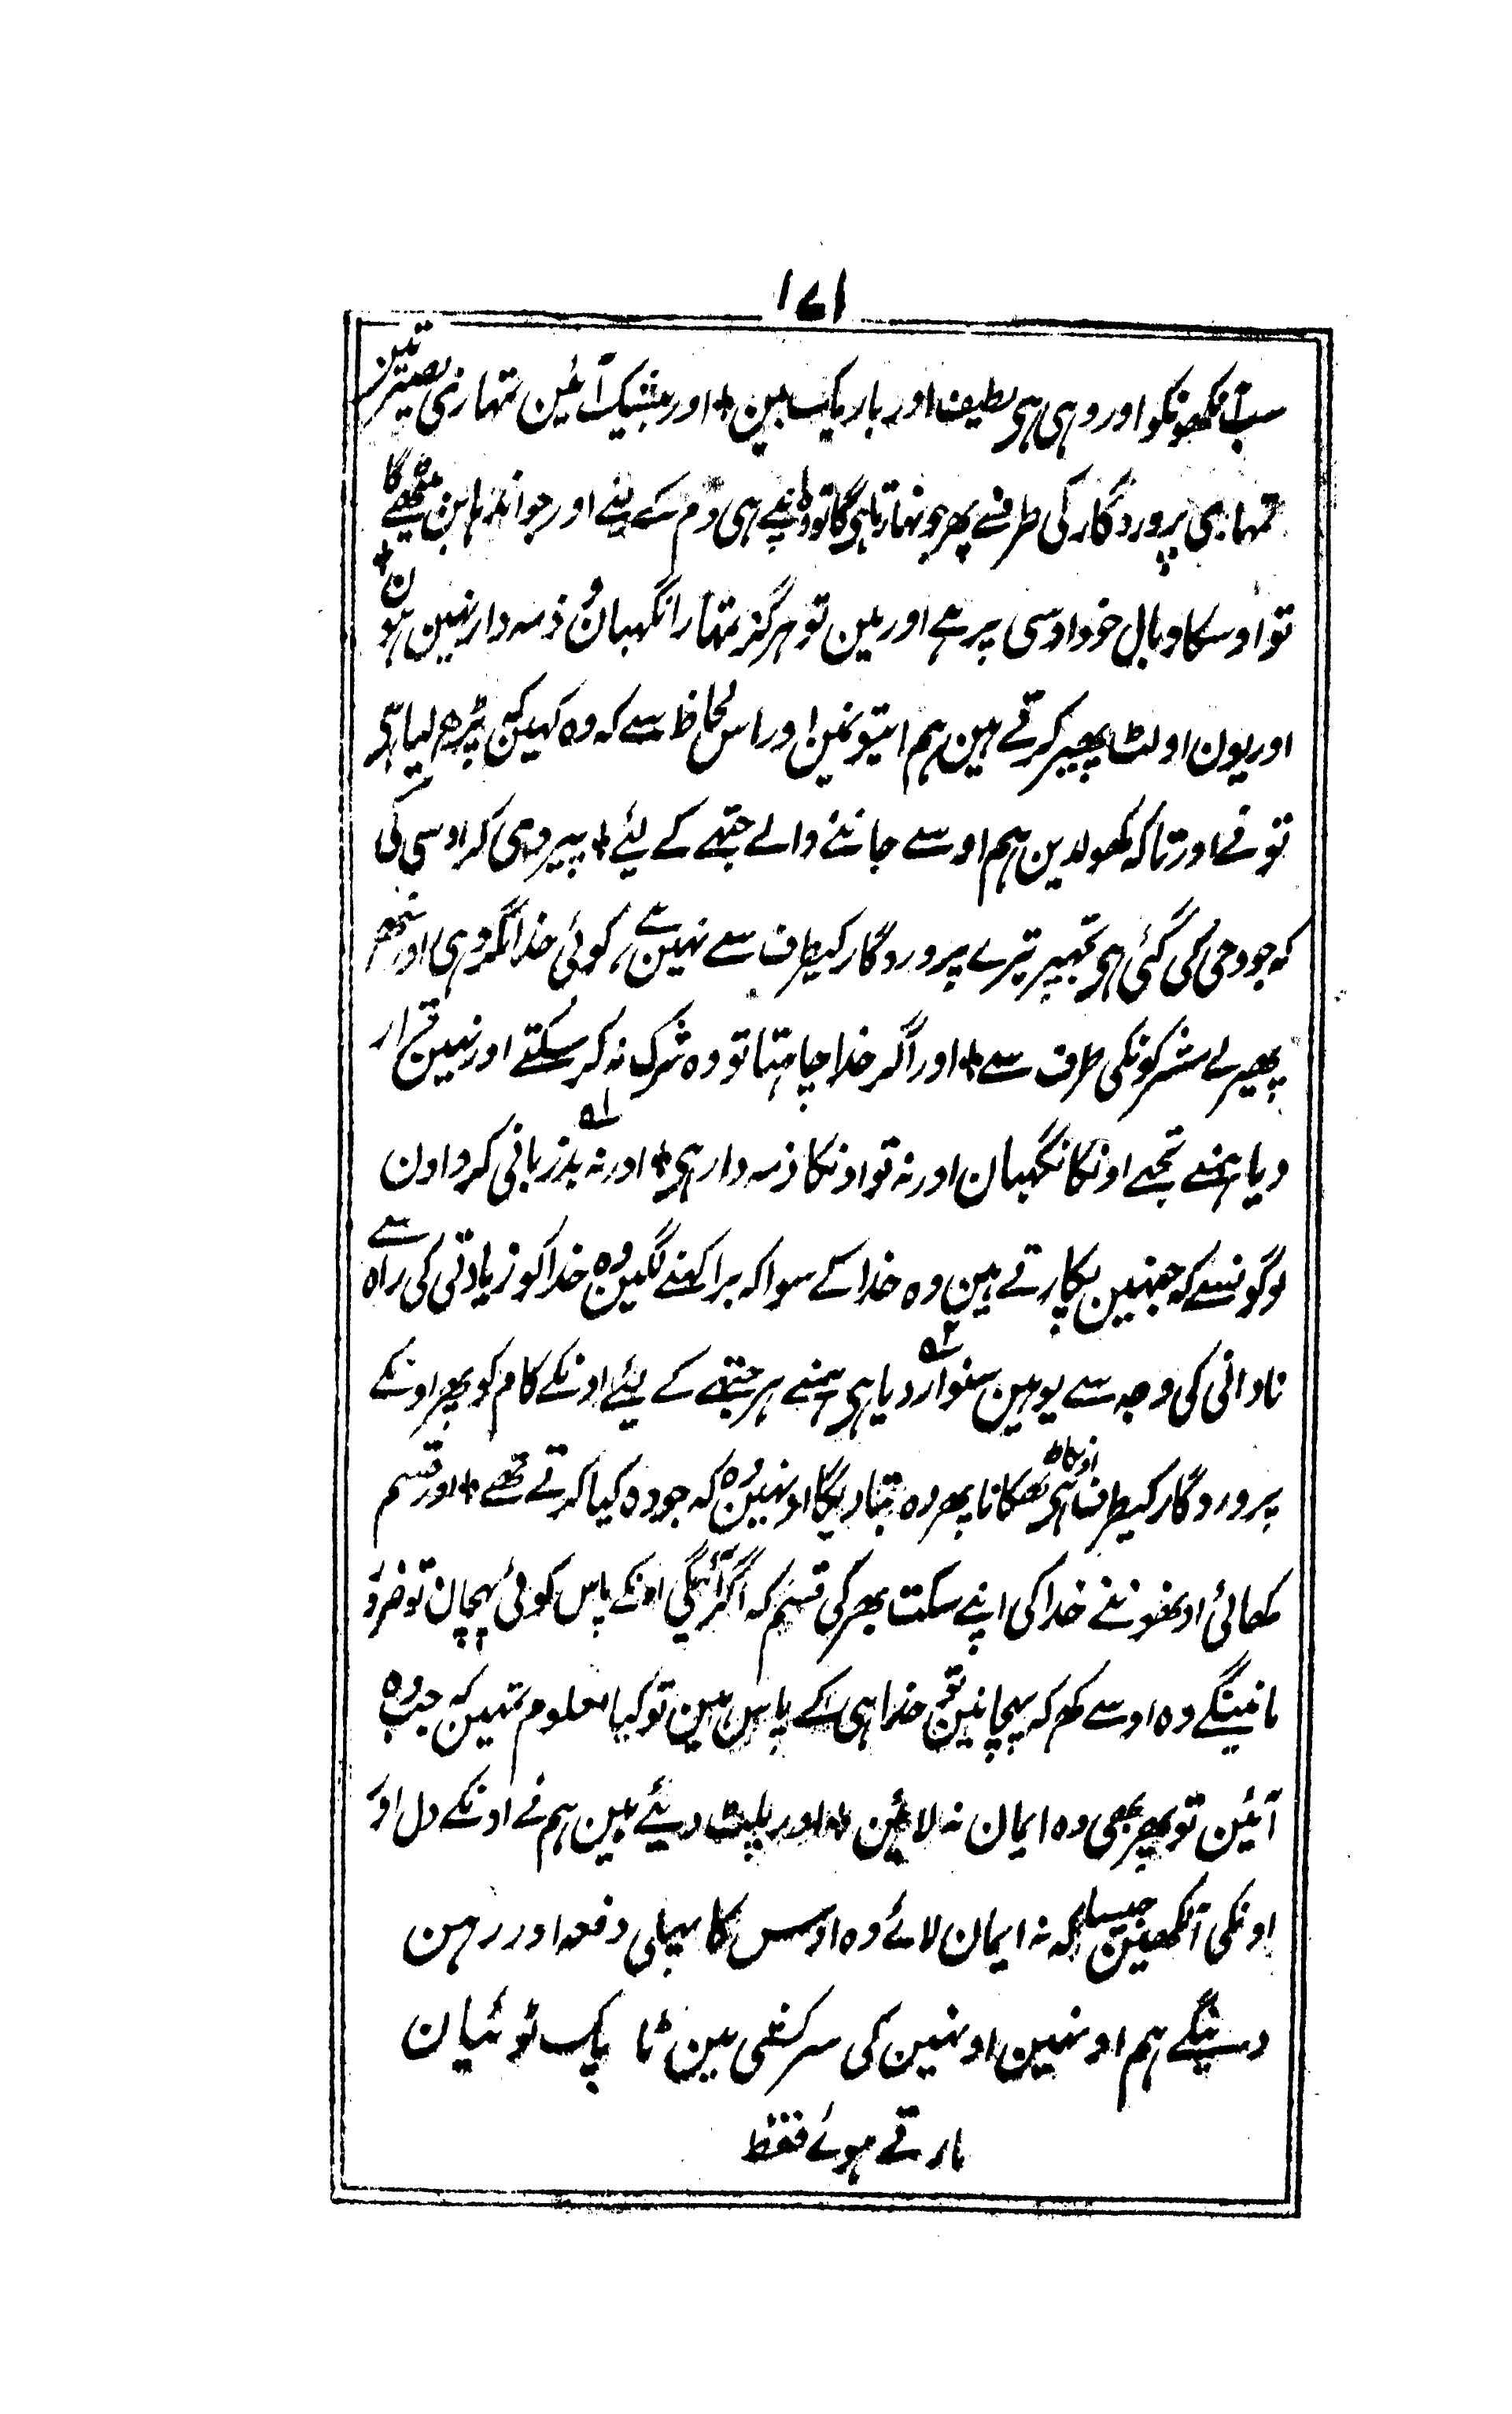 ۱۷۱
سب آنکھونکو اور وہی ہی لطیف اور باریک بین + اور بیشک آئین تمہاری بصیرتین
تمہاری پروردگار کی طرفسے پھر جو نہارتا ہی گا تو وہ اپنے ہی دم کے لئے اور جو اندھا بن بیٹھے گا
تو اوسکا وبال خود اوسی پر ہے اور مین تو ہرگز تمہارا نگہبان و ذمہ دار نہین ہون +
اور یون اولٹ پھیر کرتے ہین ہم ایتونمین اور اس لحاظ سے کہ وہ کہین کہ پڑھ لیا ہی
تونے اور تاکہ کھولدین ہم اوسے جاننے والے جتھے کے لیئے + پیروی کر اوسی کی
کہ جو وحی کی گئی ہی تجھپر تیرے پروردگار کیطرف سے نہین ہے کوئی خدا مگر وہی اور منھ
پھیرلے مشرکونکی طرف سے + اور اگر خدا چاہتا تو وہ شرک نہ کر سکتے اور نہین قرار
دیا ہمنے تجھے اونکا نگہبان اور نہ تو اونکا ذمہ دار ہی + اور نہ بدزبانی کرو اون
لوگونسے کہ جنہین پکارتے ہین وہ خدا کے سوا کہ برا کہنے لگین وہ خدا کو زیادتی کی راہ سے
نادانی کی وجہ سے یوہین سنوار دیا ہی ہمنے ہر جتھے کے لیئے اونکے کام کو پھر اونکے
پروردگار کیطرف ہی اونکا ٹھکانا پھر وہ بتا دیگا اونہین وہ کہ جو وہ کیا کرتے تھے + اور قسم
کھائی اونھونے خدا کی اپنے سکت بھر کی قسم کہ اگر آئیگی اونکے پاس کوئی پہچان تو ضرور
مانینگے وہ اوسے کہ کہ پہچانین تو خدا ہی کے پاس ہین تو کیا معلوم تمہین کہ جب وہ
آئین تو پھر بھی وہ ایمان نہ لائین + اور پلٹ دیئے ہین ہم نے اونکے دل اور
اونکی آنکھین جیسا کہ نہ ایمان لائے وہ اوس کا پہلی دفعہ اور رہن
دینگے ہم اونہین اونہین کی سرکشی مین ٹاپک ٹوئیان
مارتے ہوئے فقط